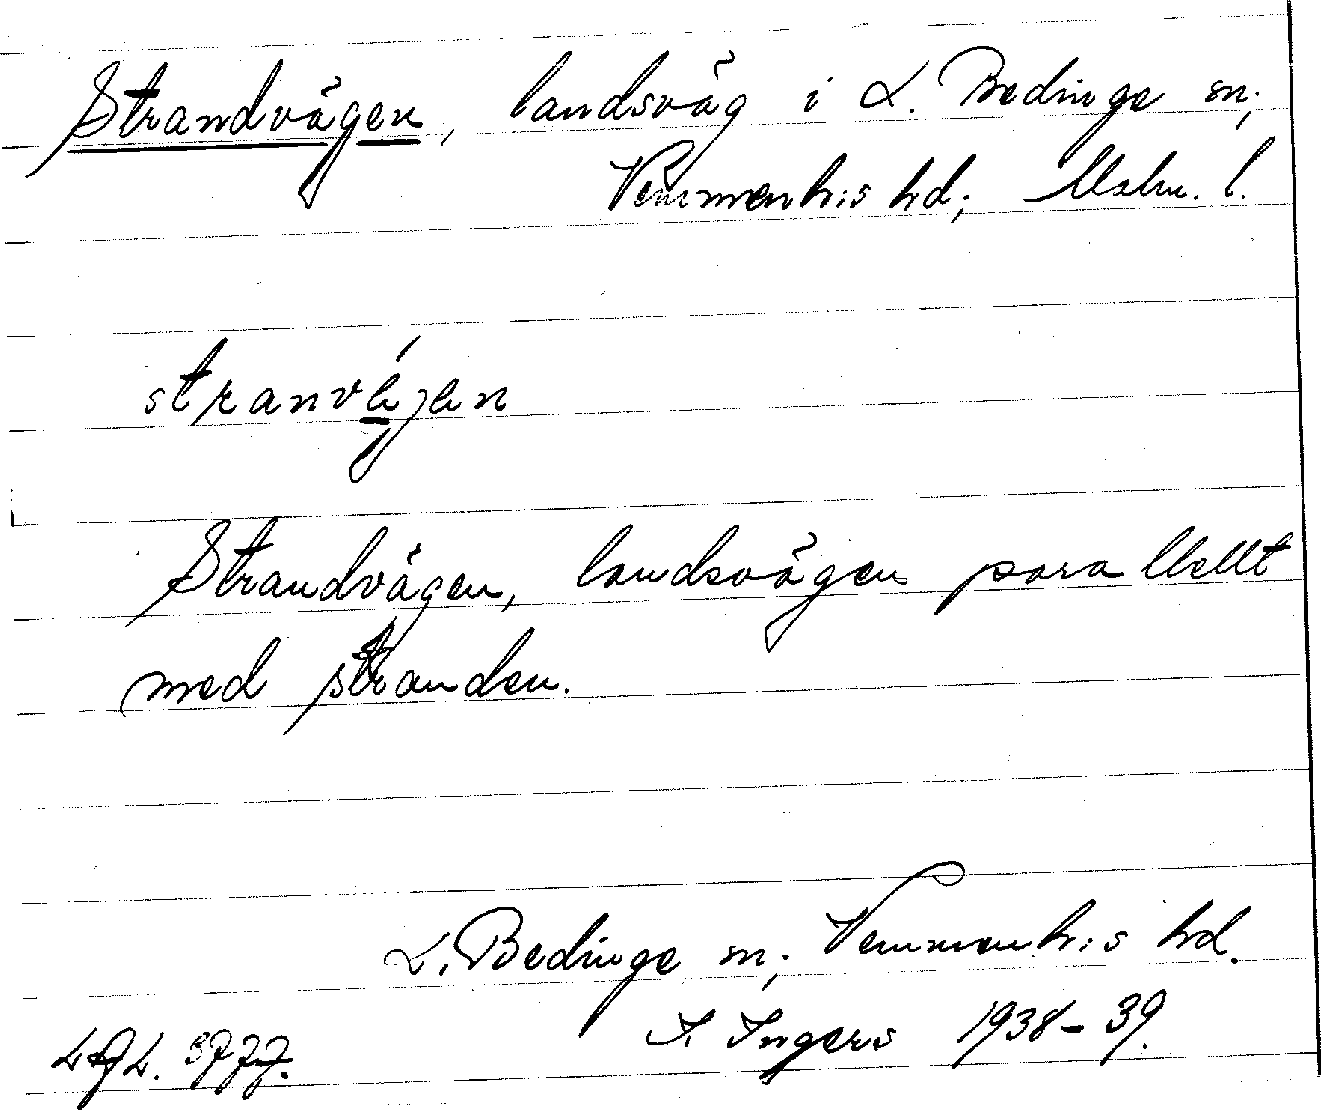 Strandvägen, landsväg i L. Bedinge sn;
Vemmenh:s hd; Malm. l.
stranvęjen
Strandvägen, landsvägen parallellt
med stranden.
L. Bedinge sn; Vemmenh:s hd.
I. Ingers 1938-39.